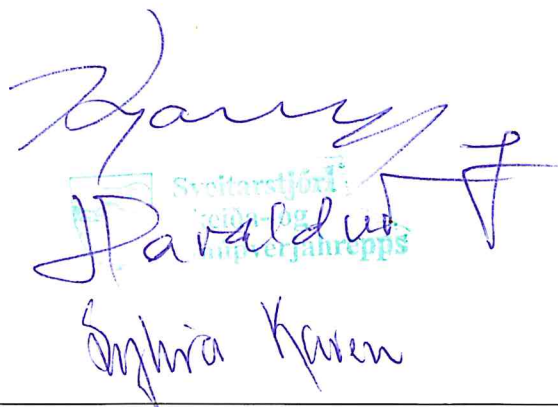 Sveitarstjóri
Skeiða- og
Gnúpverjahrepps
Haraldur
Sylvía Karen